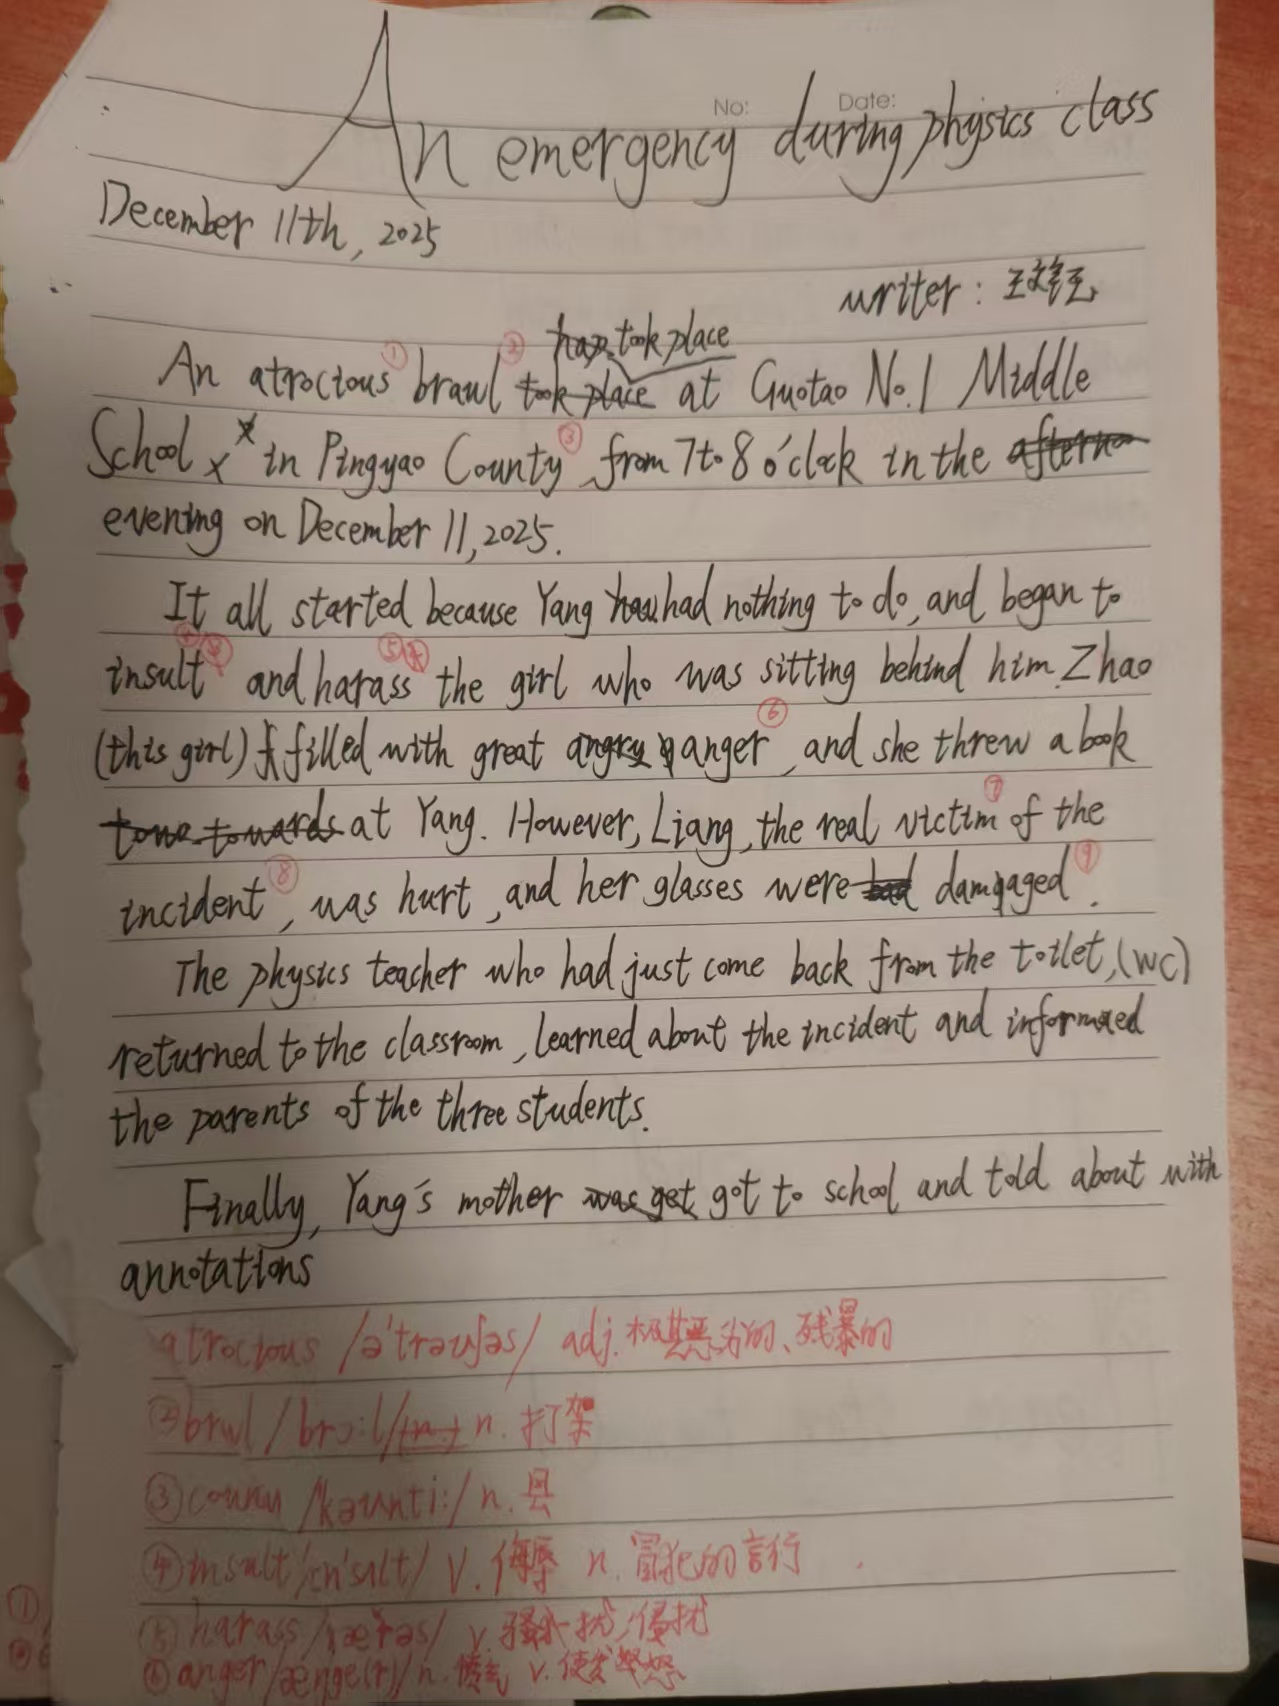 No: Date:
An emergency during physics class
December 11th, 2025
writer:
took place
An atrocious① brawl② took place at Guotao No.1 Middle
School in Pingyao County③, from 7 to 8 o'clock in the
evening on December 11, 2025.
It all started because Yang had nothing to do, and began to
insult④ and harass⑤ the girl who was sitting behind him. Zhao
(this girl) filled with great anger⑥, and she threw a book
towards at Yang. However, Liang, the real victim⑦ of the
incident⑧, was hurt, and her glasses were damaged⑨.
The physics teacher who had just come back from the toilet, (WC)
returned to the classroom, learned about the incident and informed
the parents of the three students.
Finally, Yang's mother was get got to school and told about with
annotations
atrocious /ə'trəʊʃəs/ adj. 极其恶劣的、残暴的
②brwl /brɔ:l/ n. 打架
③ /kaʊnti:/ n. 县
④insult /ɪn'sʌlt/ v. 侮辱 n. 冒犯的言行
⑤harass v. 骚扰,侵扰
⑥anger /ænge(r)/ n. 愤气 v. 使发怒
①